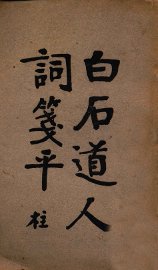 白石道人
詞箋平
柱